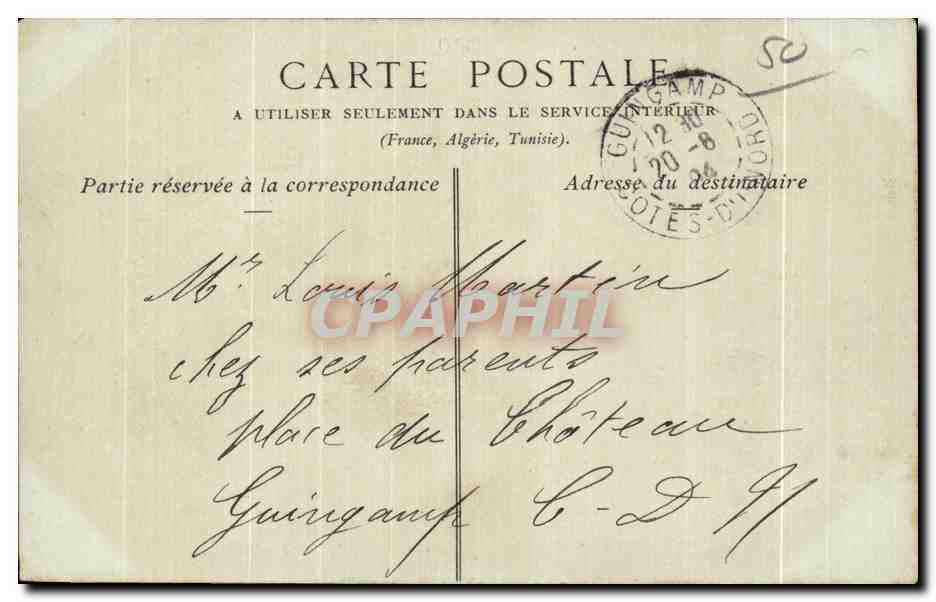 50
CARTE POSTALE
A UTILISER SEULEMENT DANS LE SERVICE INTÉRIEUR
(France, Algérie, Tunisie).
GUINGAMP
12 10
20 -6
04
COTES-D'U NORD
Partie réservée à la correspondance
Adresse du destinataire
Mr. Louis Martin
CPAPHIL
chez ses parents
place du Château
Guingamp C-D N